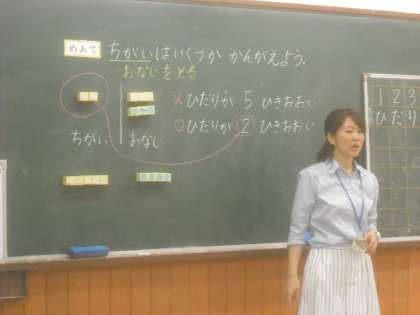 めあて ちがいはいくつか かんがえよう.
おなじをとる
×ひだりが 5 ひきおおい
○ひだりが ② ひきおおい
ちがい おなじ
1 2 3
ひだり